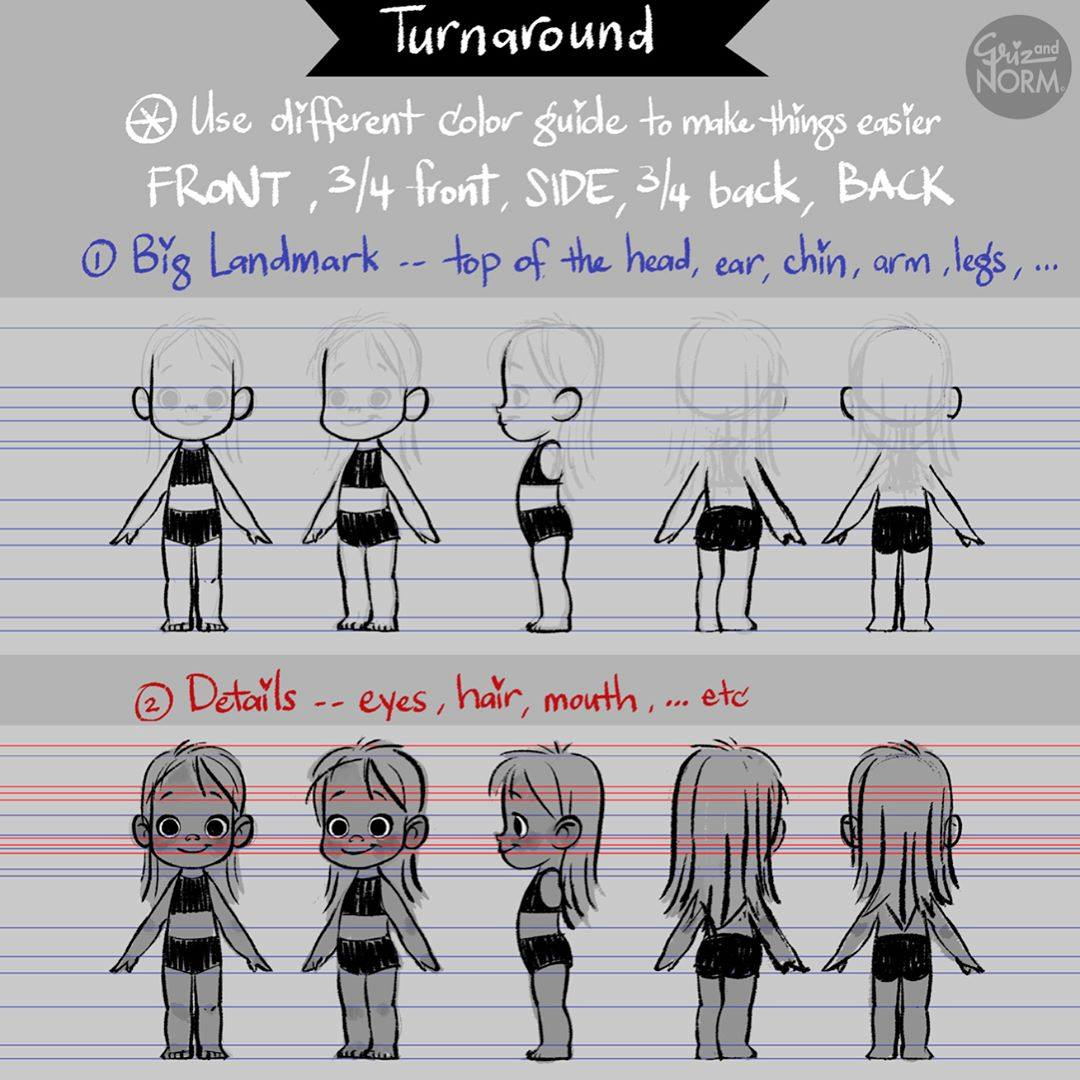 Turnaround
Griz and
NORM
Use different color guide to make things easier
FRONT, 3/4 front, SIDE, 3/4 back, BACK
① Big Landmark -- top of the head, ear, chin, arm, legs, ...
② Details -- eyes, hair, mouth, ... etc